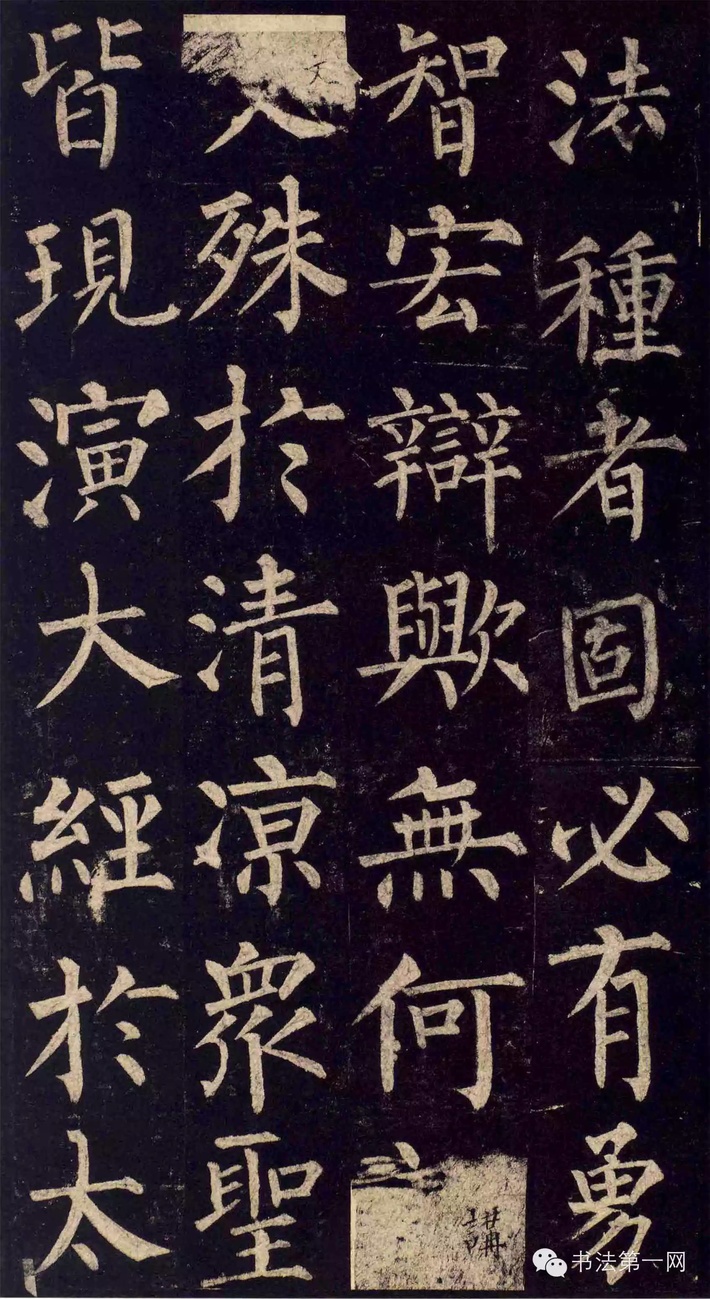 法種者固必有勇
智宏辯歟無何
文殊於清凉眾聖
皆現演大經於太
书法第一网